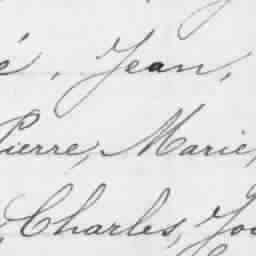 é, Jean,
Pierre, Marie,
Charles, Jou